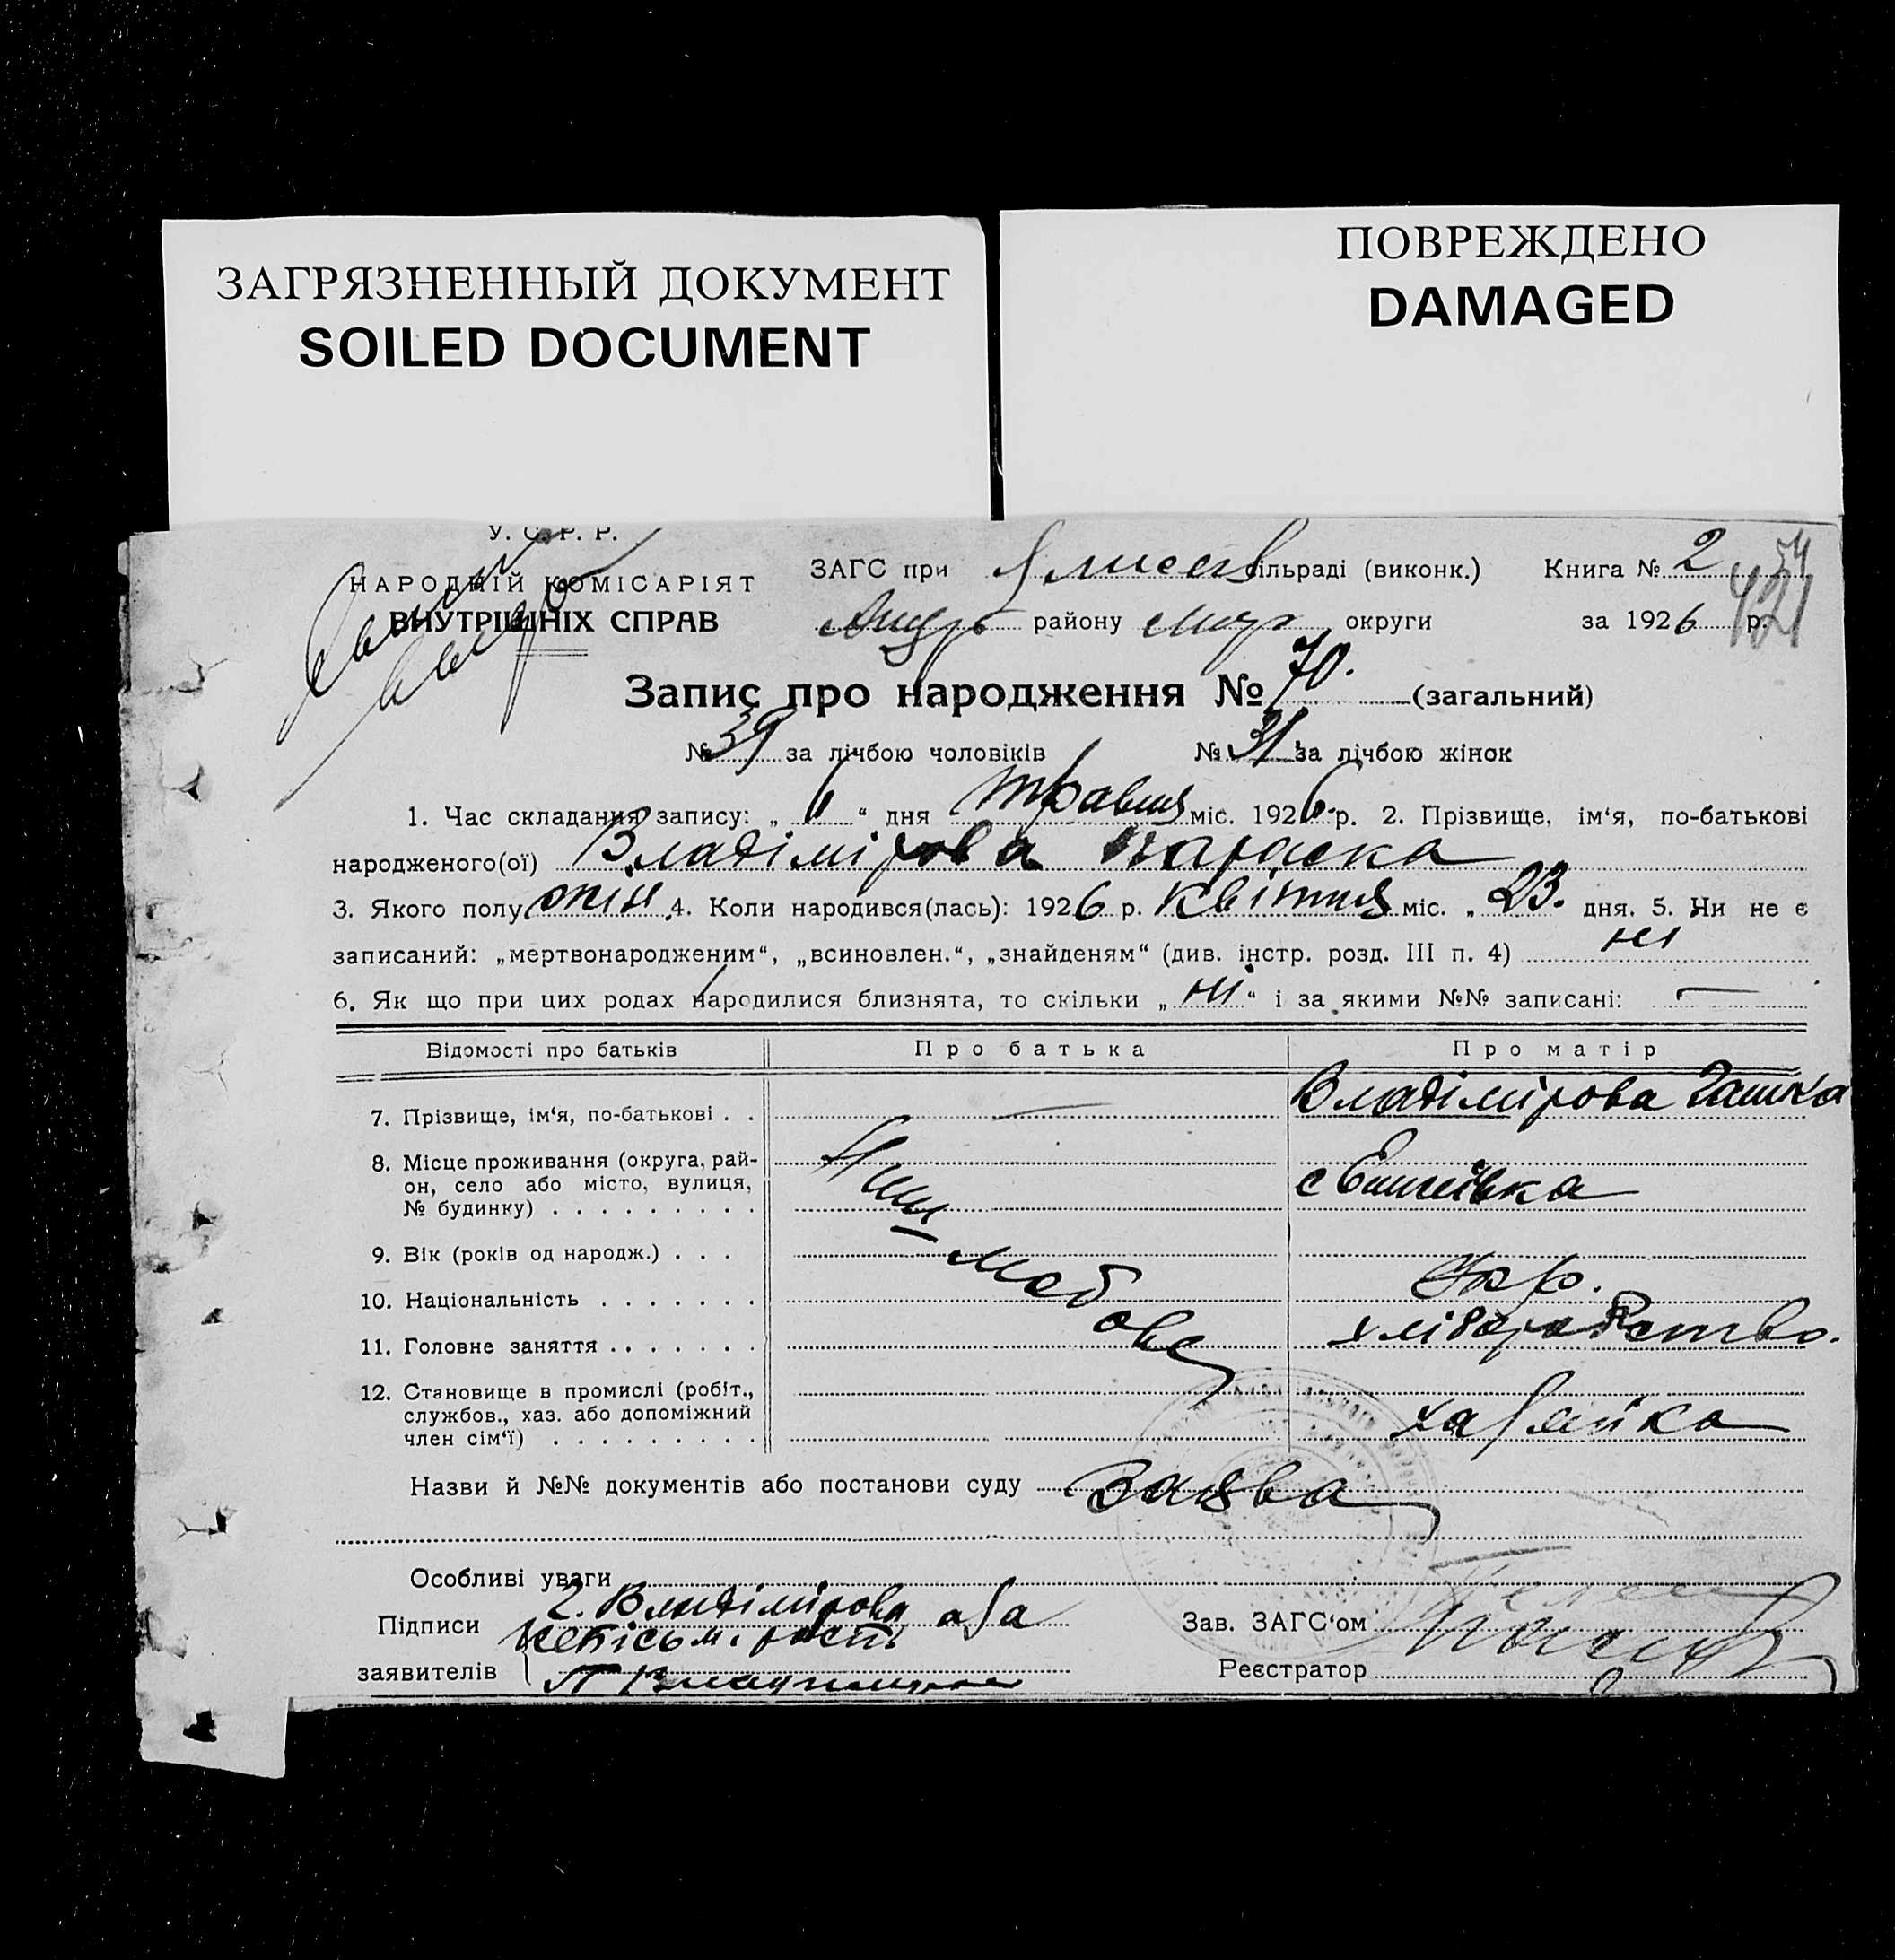 ЗАГРЯЗНЕННЫЙ ДОКУМЕНТ
SOILED DOCUMENT
ПОВРЕЖДЕНО
DAMAGED
У. С. Р. Р.
НАРОДНІЙ КОМІСАРІЯТ
ВНУТРІШНІХ СПРАВ
ЗАГС при сільраді (виконк.) Книга № 2 54
району округи за 1926 р. 421
Запис про народження № 70. (загальний)
№ 39 за лічбою чоловіків № 31 за лічбою жінок
1. Час складання запису: „ 6 “ дня травня міс. 1926 р. 2. Прізвище, ім‘я, по-батькові
народженого(ої) Владімірова Параска
3. Якого полу жін. 4. Коли народився(лась): 1926 р. квітня міс. „ 23. дня. 5. Чи не є
записаний: „мертвонародженим“, „всиновлен.“, „знайденям“ (див. інстр. розд. III п. 4) ні
6. Як що при цих родах народилися близнята, то скільки „ ні “ і за якими №№ записані: —
Відомості про батьків Про батька Про матір
7. Прізвище, ім‘я, по-батькові . . — Владімірова Гашка
8. Місце проживання (округа, рай-
он, село або місто, вулиця,
№ будинку) . . . . . . . . . с Елисеївка
9. Вік (років од народж.) . . .
10. Національність . . . . . . . Укр.
11. Головне заняття . . . . . . . хліборобство.
12. Становище в промислі (робіт.,
службов., хаз. або допоміжний
член сім‘ї) . . . . . . . . . хазяйка
Назви й №№ документів або постанови суду Заява
Особливі уваги
Підписи Г. Владімірова а за
неписьм. расп.
заявителів
Зав. ЗАГС‘ом
Реєстратор